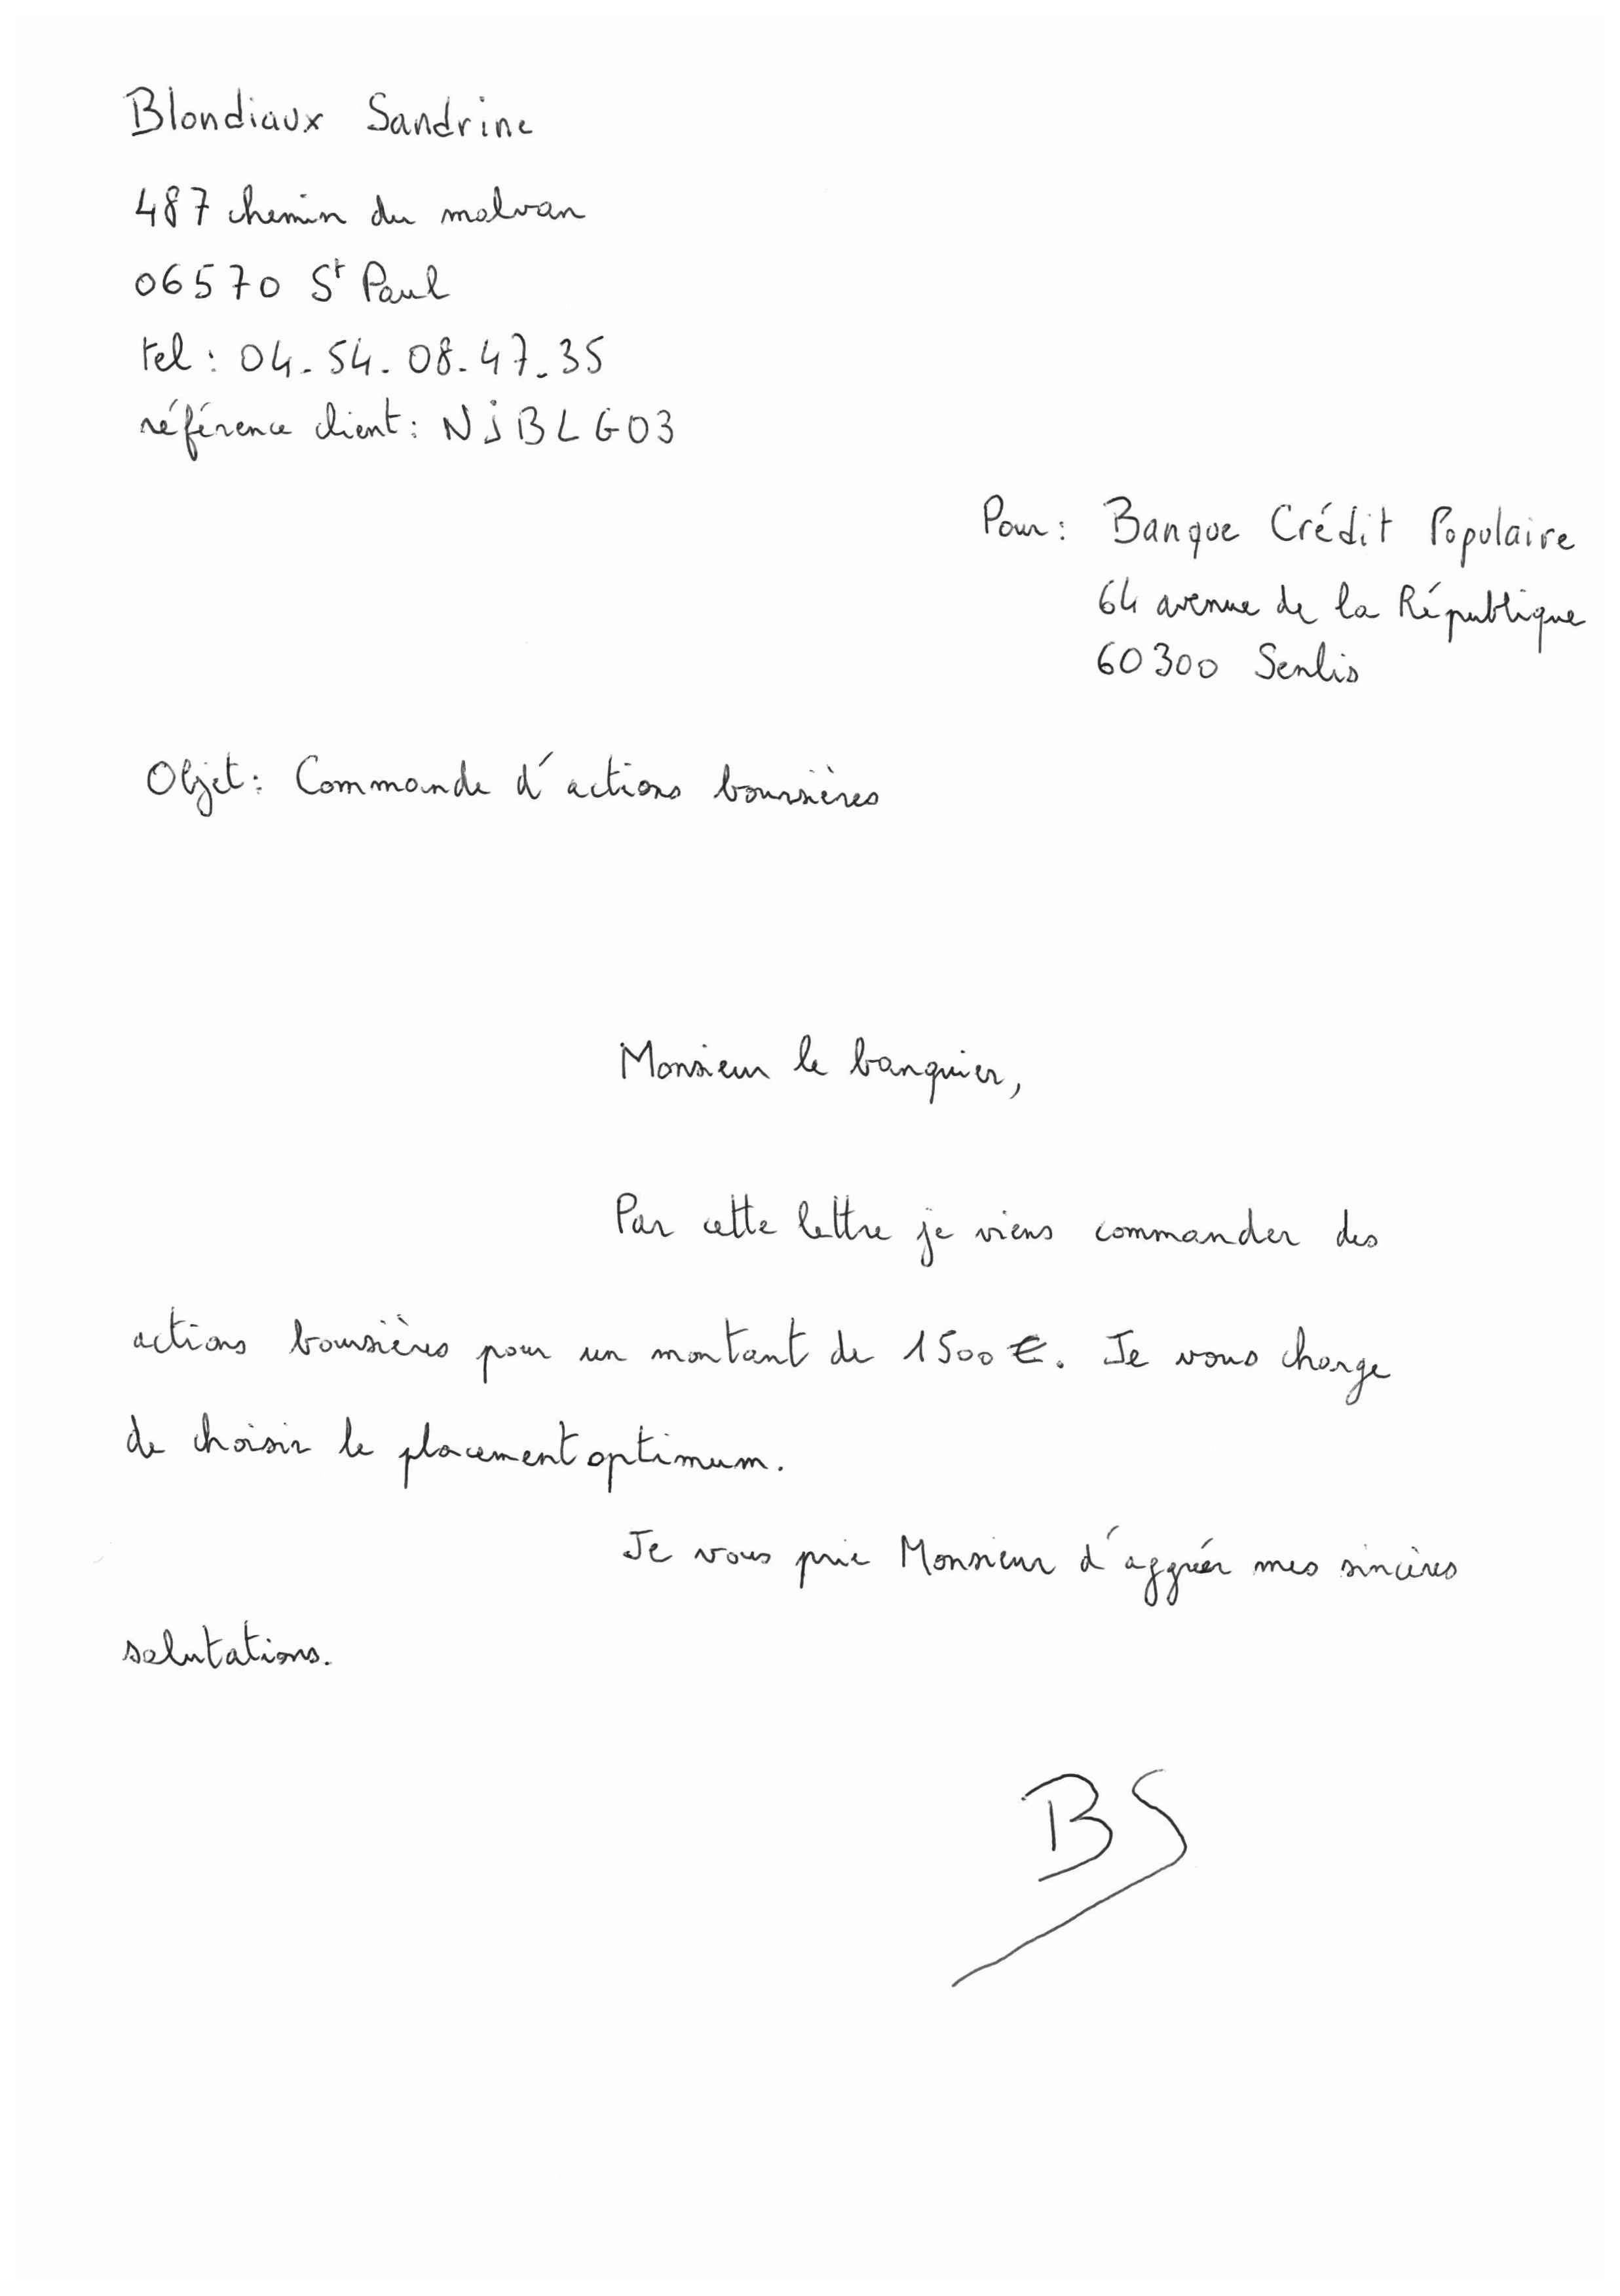 Blondiaux Sandrine
487 chemin du malvan
06570 St Paul
tel : 04. 54. 08. 47. 35
référence client : NJBLG03
Pour : Banque Crédit Populaire
64 avenue de la République
60300 Senlis
Objet : Commande d'actions boursières
Monsieur le banquier,
Par cette lettre je viens commander des
actions boursières pour un montant de 1500 €. Je vous charge
de choisir le placement optimum.
Je vous prie Monsieur d'aggréer mes sincères
salutations.
BS